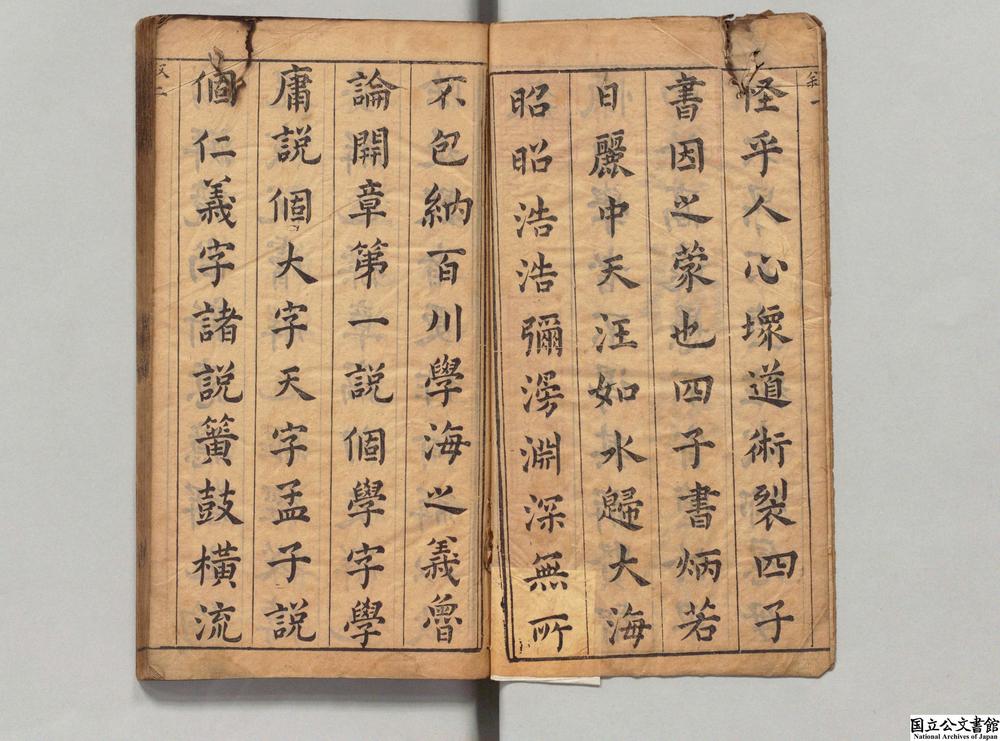 叙一
怪乎人心壞道術裂四子
書因之蒙也四子書炳若
日麗中天汪如水歸大海
昭昭浩浩彌澇淵深無所
不包納百川學海之義魯
論開章第一說個學字學
庸說個大字天字孟子說
個仁義字諸說簧鼓橫流
叙二
国立公文書館
National Archives of Japan